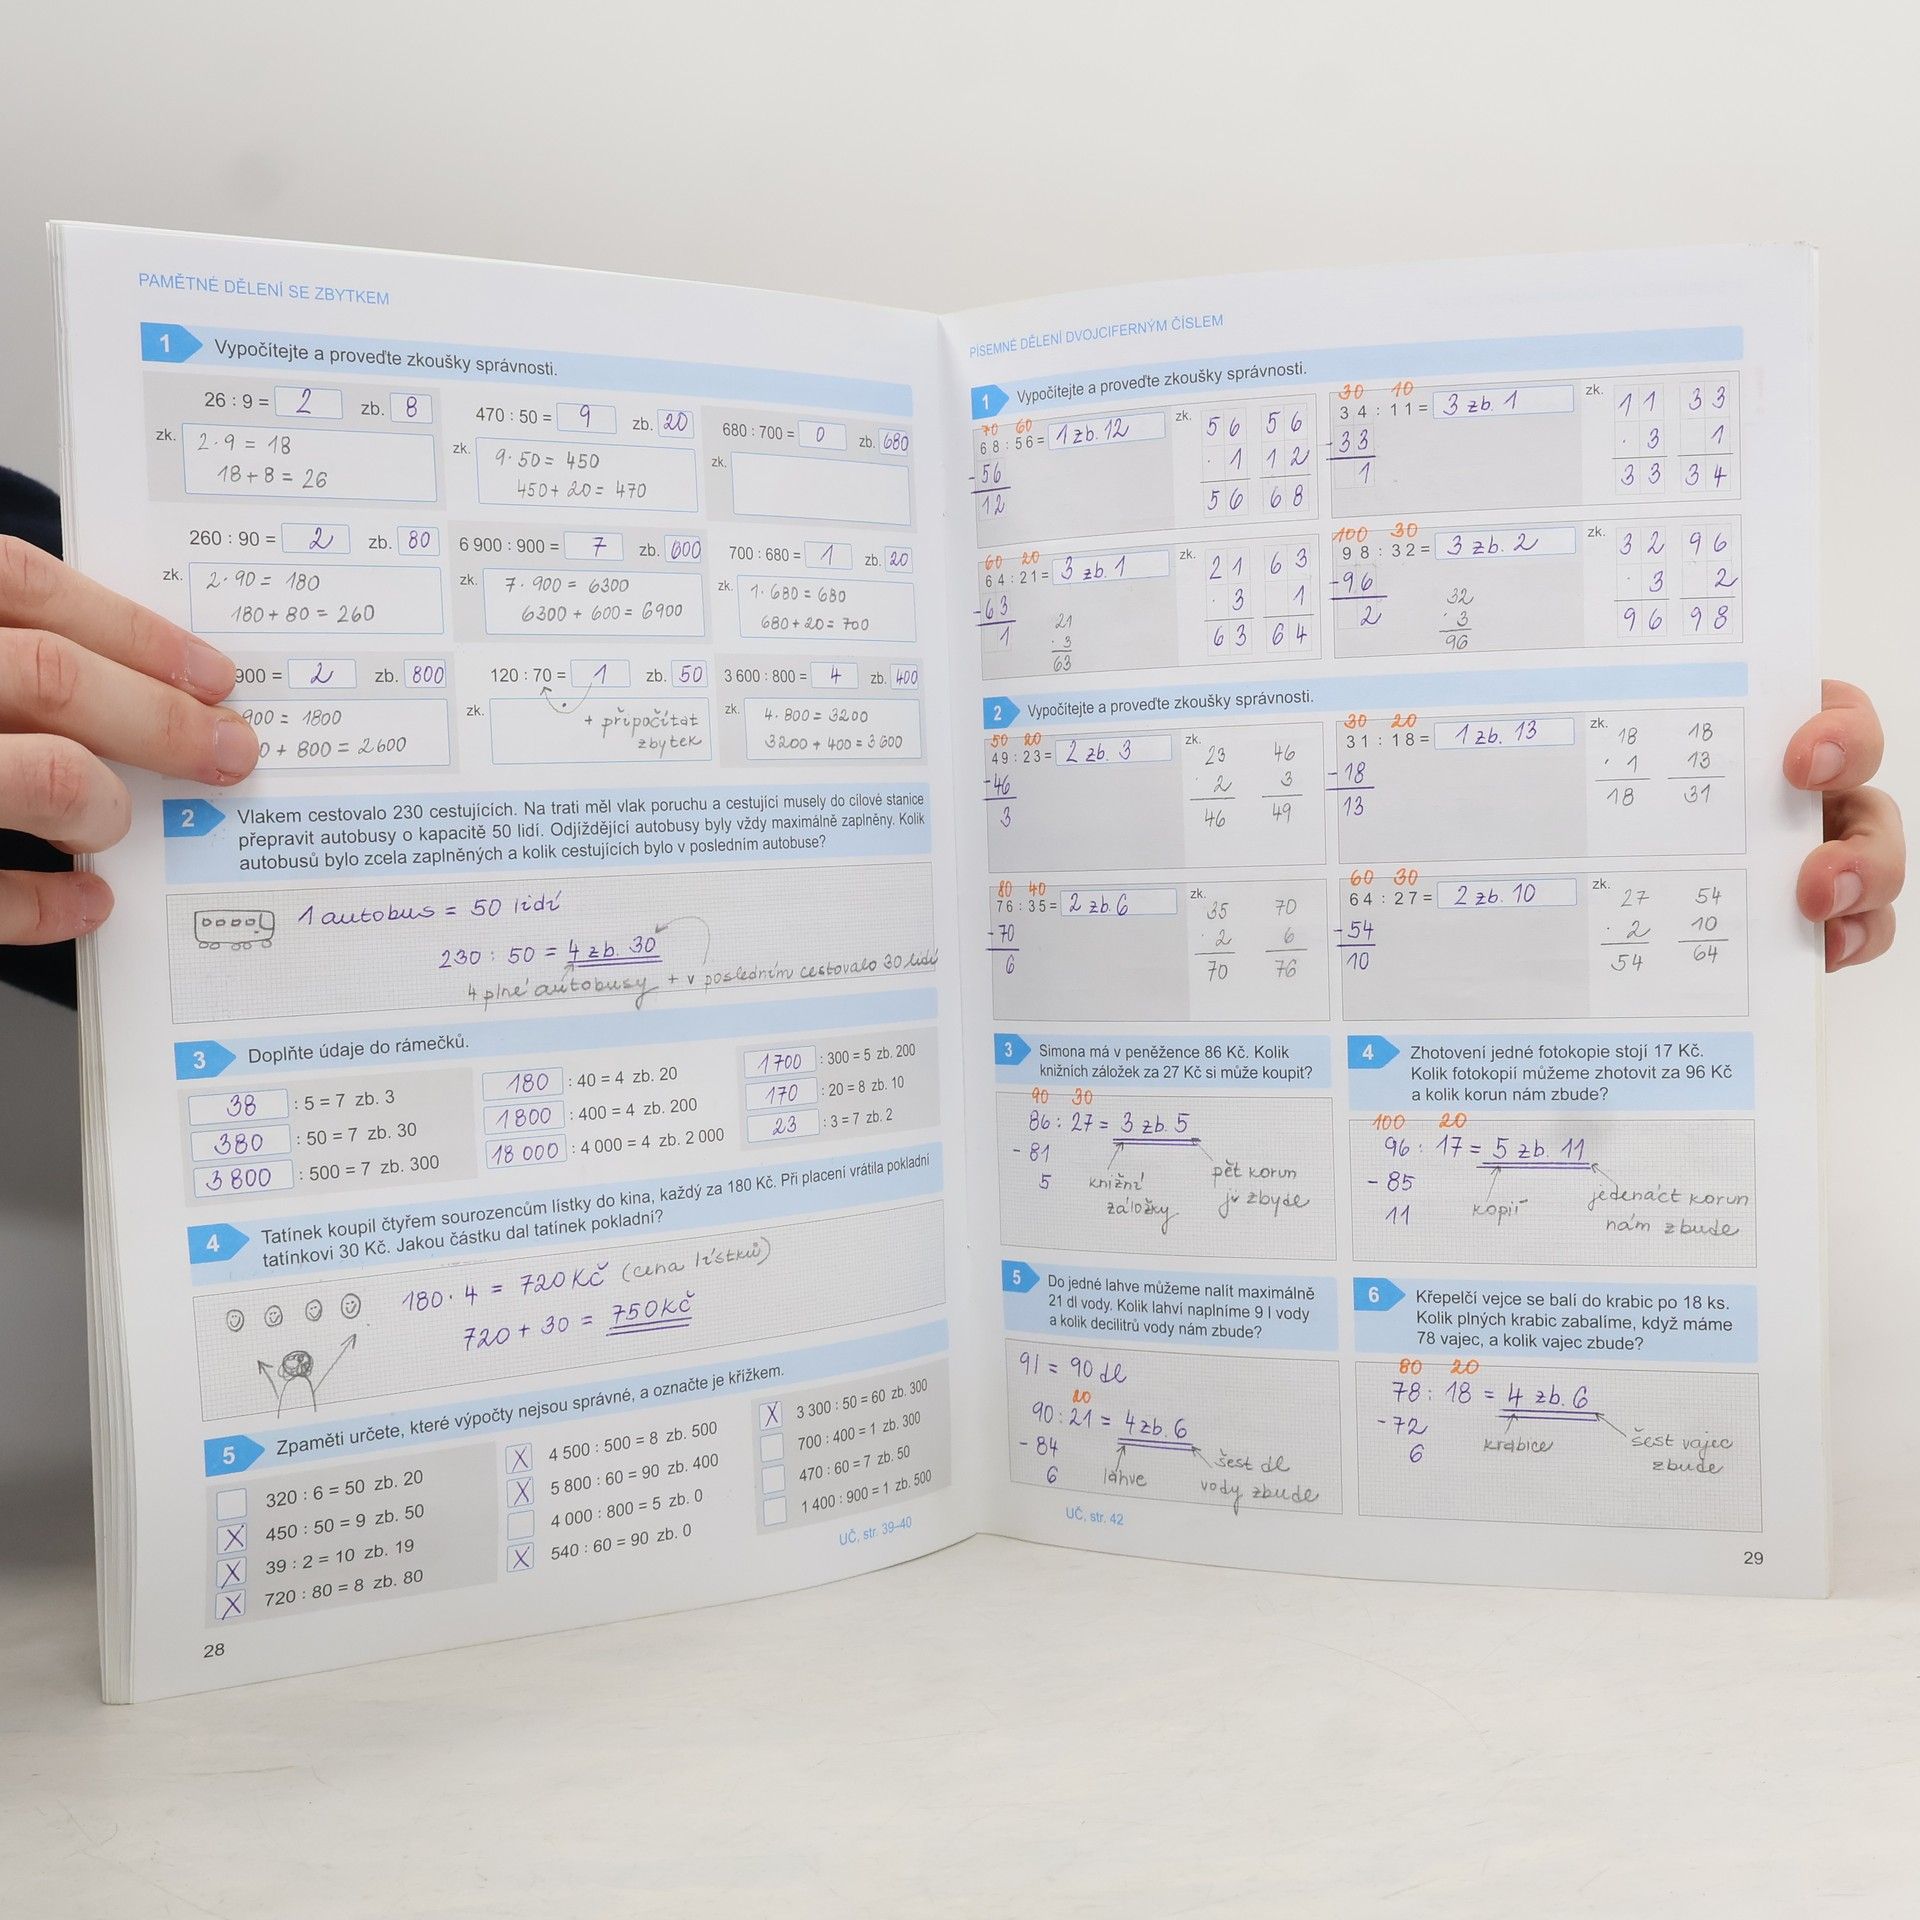 PAMĚTNÉ DĚLENÍ SE ZBYTKEM
1 Vypočítejte a proveďte zkoušky správnosti.
26 : 9 = 2 zb. 8
zk. 2·9 = 18
18+8 = 26
470 : 50 = 9 zb. 20
zk. 9·50 = 450
450+20 = 470
680 : 700 = 0 zb. 680
zk.
260 : 90 = 2 zb. 80
zk. 2·90 = 180
180+80 = 260
6 900 : 900 = 7 zb. 600
zk. 7·900 = 6300
6300 + 600 = 6900
700 : 680 = 1 zb. 20
zk. 1·680 = 680
680+20 = 700
900 = 2 zb. 800
900 = 1800
0 + 800 = 2600
120 : 70 = 1 zb. 50
zk. + připočítat
zbytek
3 600 : 800 = 4 zb. 400
zk. 4·800 = 3200
3200 + 400 = 3600
2 Vlakem cestovalo 230 cestujících. Na trati měl vlak poruchu a cestující musely do cílové stanice
přepravit autobusy o kapacitě 50 lidí. Odjíždějící autobusy byly vždy maximálně zaplněny. Kolik
autobusů bylo zcela zaplněných a kolik cestujících bylo v posledním autobuse?
1 autobus = 50 lidí
230 : 50 = 4 zb. 30
4 plné autobusy + v posledním cestovalo 30 lidí
3 Doplňte údaje do rámečků.
38 : 5 = 7 zb. 3
380 : 50 = 7 zb. 30
3800 : 500 = 7 zb. 300
180 : 40 = 4 zb. 20
1800 : 400 = 4 zb. 200
18 000 : 4 000 = 4 zb. 2 000
1700 : 300 = 5 zb. 200
170 : 20 = 8 zb. 10
23 : 3 = 7 zb. 2
4 Tatínek koupil čtyřem sourozencům lístky do kina, každý za 180 Kč. Při placení vrátila pokladní
tatínkovi 30 Kč. Jakou částku dal tatínek pokladní?
180 · 4 = 720 Kč (cena lístků)
720 + 30 = 750 Kč
5 Zpaměti určete, které výpočty nejsou správné, a označte je křížkem.
320 : 6 = 50 zb. 20
X 450 : 50 = 9 zb. 50
X 39 : 2 = 10 zb. 19
X 720 : 80 = 8 zb. 80
X 4 500 : 500 = 8 zb. 500
X 5 800 : 60 = 90 zb. 400
4 000 : 800 = 5 zb. 0
X 540 : 60 = 90 zb. 0
X 3 300 : 50 = 60 zb. 300
700 : 400 = 1 zb. 300
470 : 60 = 7 zb. 50
1 400 : 900 = 1 zb. 500
UČ, str. 39–40
28
PÍSEMNÉ DĚLENÍ DVOJCIFERNÝM ČÍSLEM
1 Vypočítejte a proveďte zkoušky správnosti.
70 60
68 : 56 = 1 zb. 12
-56
12
zk. 56 56
· 1 12
56 68
30 10
34 : 11 = 3 zb. 1
-33
1
zk. 11 33
· 3 1
33 34
60 20
64 : 21 = 3 zb. 1
-63
1
21
· 3
63
zk. 21 63
· 3 1
63 64
100 30
98 : 32 = 3 zb. 2
-96
2
32
· 3
96
zk. 32 96
· 3 2
96 98
2 Vypočítejte a proveďte zkoušky správnosti.
50 20
49 : 23 = 2 zb. 3
-46
3
zk. 23 46
· 2 3
46 49
30 20
31 : 18 = 1 zb. 13
-18
13
zk. 18 18
· 1 13
18 31
80 40
76 : 35 = 2 zb. 6
-70
6
zk. 35 70
· 2 6
70 76
60 30
64 : 27 = 2 zb. 10
-54
10
zk. 27 54
· 2 10
54 64
3 Simona má v peněžence 86 Kč. Kolik
knižních záložek za 27 Kč si může koupit?
90 30
86 : 27 = 3 zb. 5
- 81
5
knižní
záložky
pět korun
jí zbyde
4 Zhotovení jedné fotokopie stojí 17 Kč.
Kolik fotokopií můžeme zhotovit za 96 Kč
a kolik korun nám zbude?
100 20
96 : 17 = 5 zb. 11
- 85
11
kopií
jedenáct korun
nám zbude
5 Do jedné lahve můžeme nalít maximálně
21 dl vody. Kolik lahví naplníme 9 l vody
a kolik decilitrů vody nám zbude?
9l = 90 dl
20
90 : 21 = 4 zb. 6
- 84
6
láhve
šest dl
vody zbude
6 Křepelčí vejce se balí do krabic po 18 ks.
Kolik plných krabic zabalíme, když máme
78 vajec, a kolik vajec zbude?
80 20
78 : 18 = 4 zb. 6
-72
6
krabice
šest vajec
zbude
UČ, str. 42
29